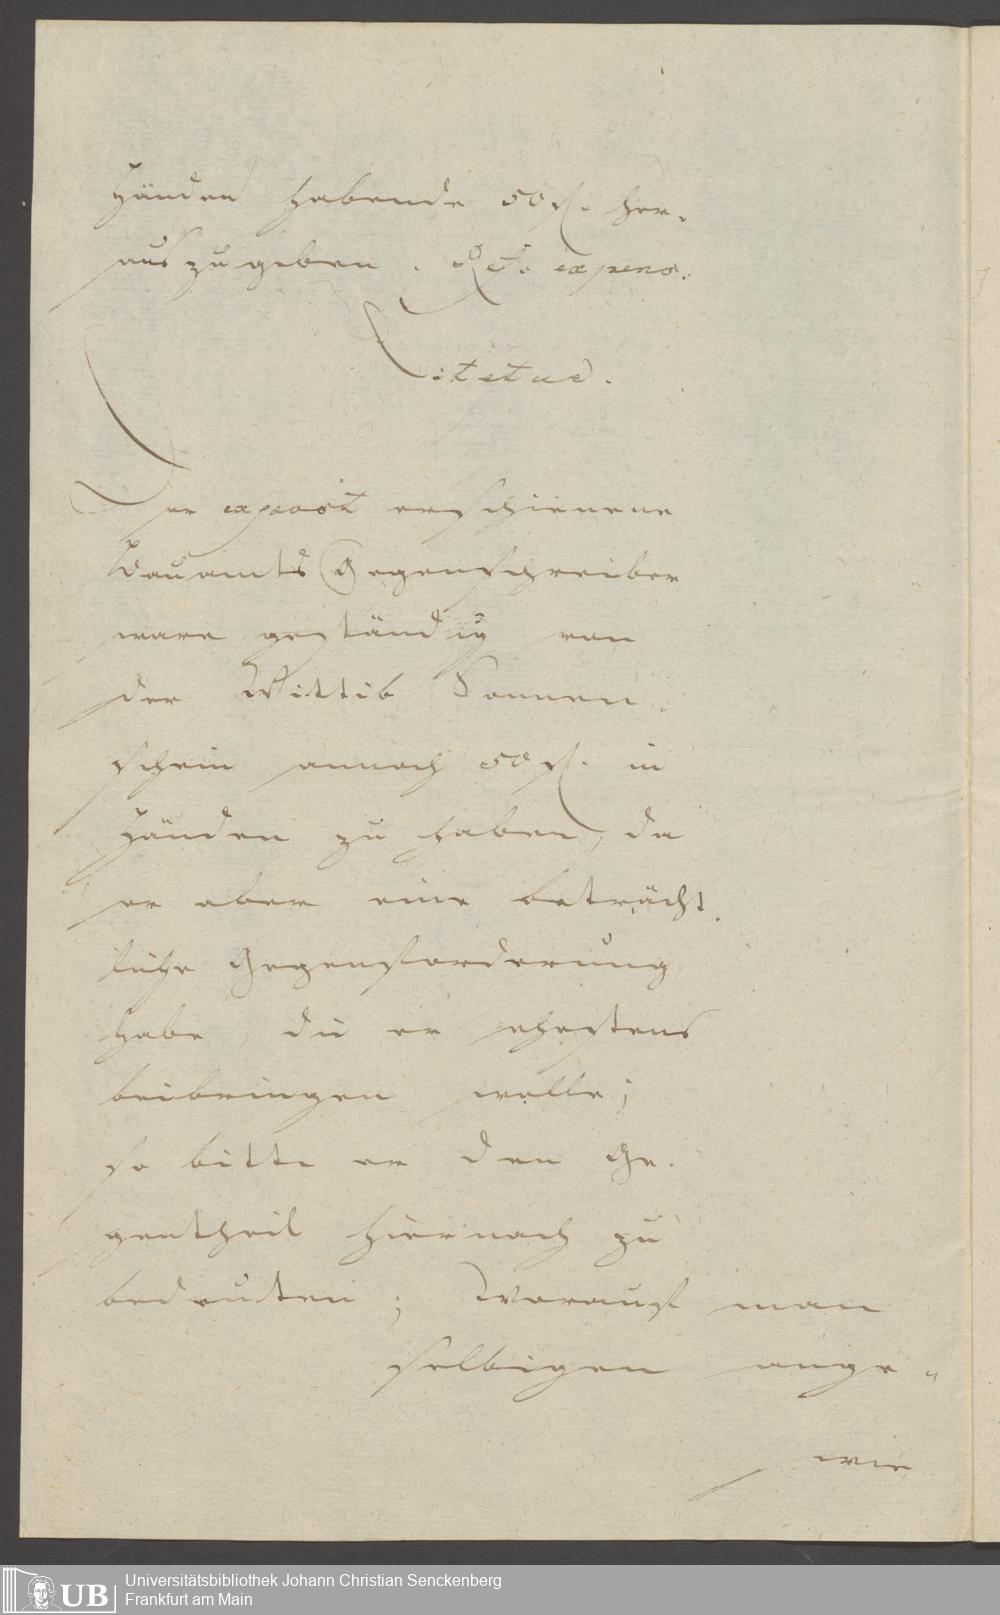 Händen habende 50 fl. her-
aus zu geben. Ref. expens.
Citetur.
Der ex post erschienene
Bauamts Gegenschreiber
ware geständig von
der Wittib Sonnen-
schein annoch 50 fl. in
Händen zu haben, da
er aber eine beträcht-
liche Gegenforderung
habe, die er ehestens
beibringen wolle;
so bitte er den Ge-
gentheil hiernach zu
bedeuten; Worauf man
selbigen ange-
wie
UB
Universitätsbibliothek Johann Christian Senckenberg
Frankfurt am Main